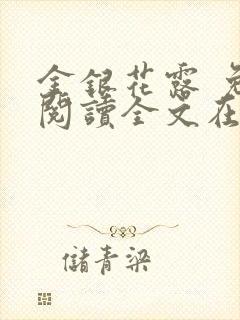 金銀花露
閱讀全文在
儲青梁